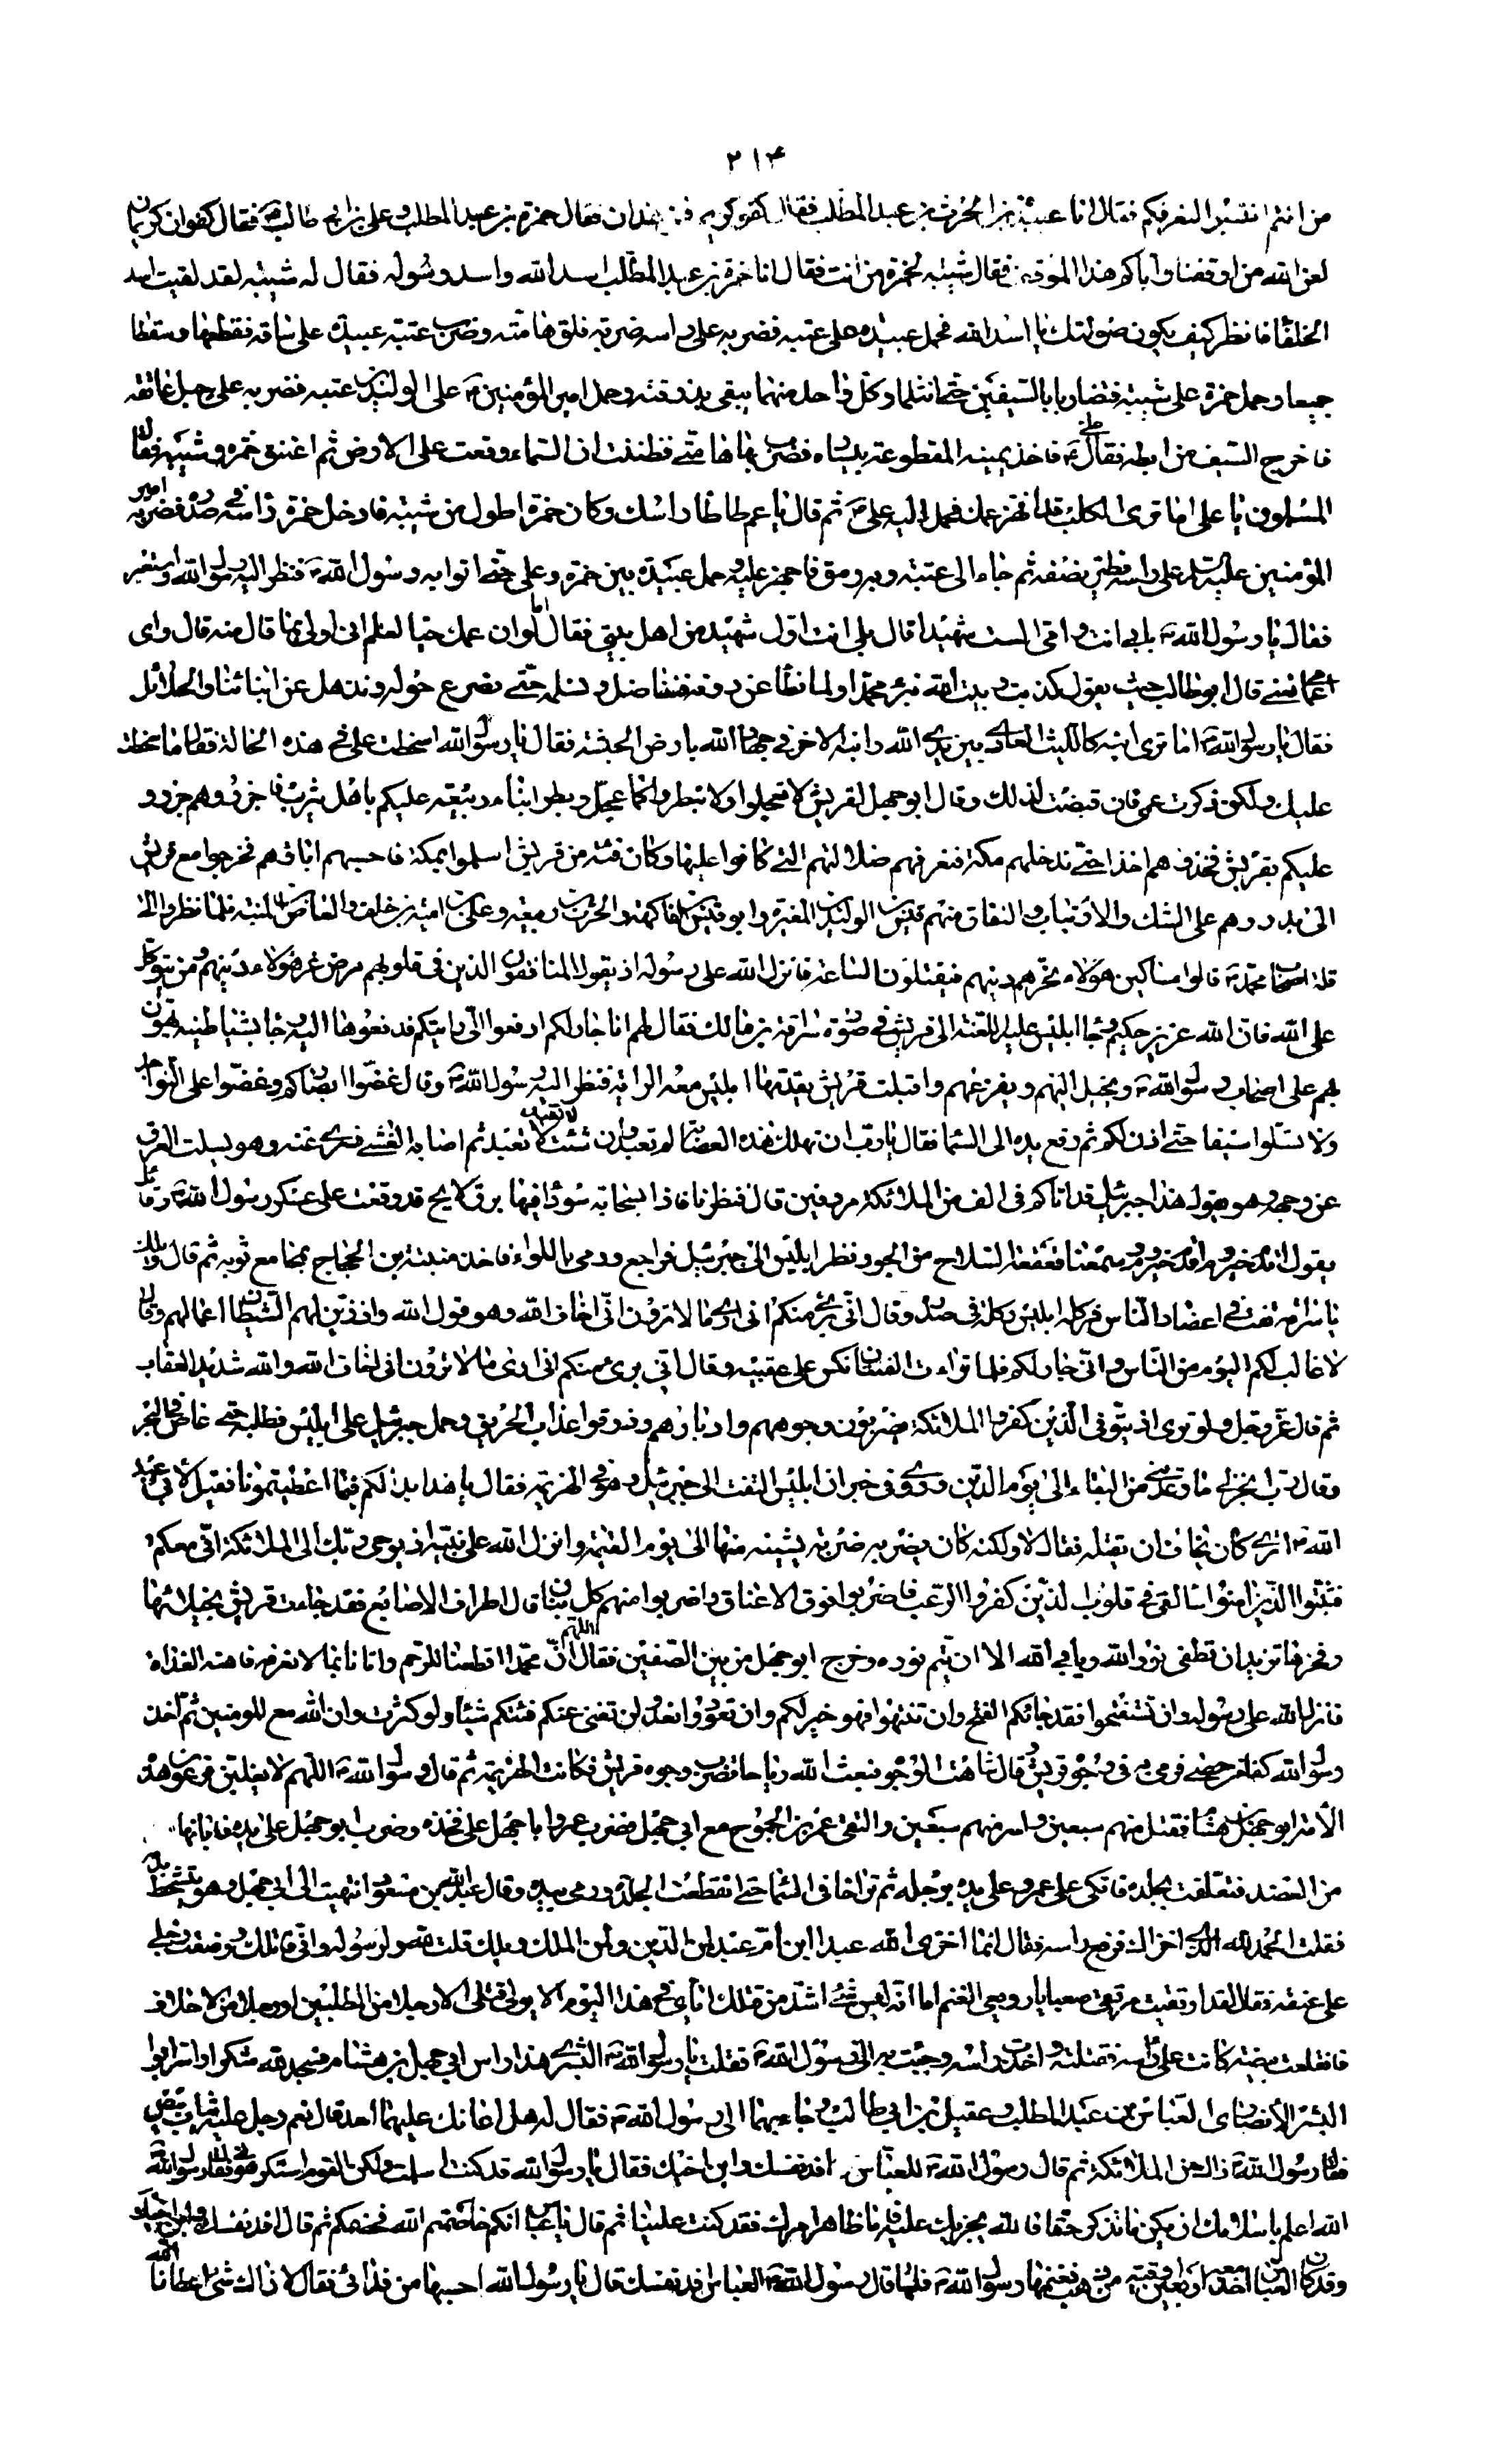 ٢١۴
من انتم انتسبوا لنعرفكم فقال انا عبيدة بن الحرث بن عبد المطلب فقال كفو كريم فمن هذان فقال حمزة بن عبد المطلب وعلى بن ابى طالب فقال كفوان كريمان
لعن الله من اوقفنا واياكم هذا الموقف فقال شيبه لحمزة من انت فقال انا حمزة بن عبد المطلب اسد الله واسد رسوله فقال له شيبه لقد لقيت اسد
الحلفا فانظر كيف يكون صولتك يا اسد الله فحمل عبيده على عتبه فضربه على راسه ضربة فلق هامته وضرب عتبة عبيدة على ساقه فقطعها وسقطا
جميعا وحمل حمزة على شيبة فتضاربا بالسيفين حتى انثلما وكل واحد منهما يتقى بدرقته وحمل امير المؤمنين على الوليد بن عتبه فضربه على حبل عاتقه
فاخرج السيف من ابطه فقال على فاخذ يمينه المقطوعة بيساره فضرب بها هامتى فظننت ان السماء وقعت على الارض ثم اعتنق حمزه وشيبه فقال
المسلمون يا على اما ترى الكلب قد انهز عمك فحمل اليه على ثم قال يا عم طاطا راسك وكان حمزة اطول من شيبه فادخل حمزة راسه فى صدره فضربه امير
المؤمنين عليه السلم على راسه فطير نصفه ثم جاء الى عتبة وبه رمق فاجهز عليه وحمل عبيدة بين حمزه وعلى حتى اتوا به رسول الله فنظر اليه رسول الله واستعبر
فقال يا رسول الله بابى انت وامى الست شهيدا قال بلى انت اول شهيد من اهل بيتى فقال اما لو ان عمك حيا لعلم انى اولى بما قال منه قال واى
اعمامى تعنى قال ابو طالب حيث يقول كذبتم وبيت الله نبزى محمدا ولما نطاعن دونه ونناضل ونسلمه حتى نصرع حوله ونذهل عن ابنائنا والحلائل
فقال رسول الله اما ترى ابنه كالليث العادى بين يدى الله وابنه الاخر فى جهاد الله بارض الحبشه فقال يا رسول الله اسخطت على فى هذه الحالة فقال ما سخطت
عليك ولكن ذكرت عمى فانقبضت لذلك وقال ابو جهل لقريش لا تعجلوا ولا تبطروا كما عجل وبطر ابناء ربيعه عليكم باهل يثرب فاجزروهم جزرا و
عليكم بقريش فخذوهم اخذا حتى ندخلهم مكة فنعرفهم ضلالتهم التى كانوا عليها وكان فئه من قريش اسلموا بمكة فاحبسهم اباؤهم فخرجوا مع قريش
الى بدر وهم على الشك والارتياب والنفاق منهم قيس بن الوليد بن المغيره وابو قيس بن الفاكهه والحرث بن ربيعه وعلى بن امية بن خلف والعاص بن المنبه فلما نظروا الى
قلة اصحاب محمد قالوا مساكين هؤلاء غرهم دينهم فيقتلون الساعة فانزل الله على رسوله اذ يقول المنافقون والذين فى قلوبهم مرض غر هؤلاء دينهم ومن يتوكل
على الله فان الله عزيز حكيم وجاء ابليس عليه اللعنة الى قريش فى صورة سراقة بن مالك فقال لهم انا جار لكم ادفعوا الى رايتكم فدفعوها اليه وجاء بشياطينه يهول
بهم على اصحاب رسول الله ويخيل اليهم ويفزعهم واقبلت قريش يقدمها ابليس معه الراية فنظر اليه رسول الله وقال غضوا ابصاركم وعضوا على النواجد
ولا تسلوا سيفا حتى اذن لكم ثم رفع يده الى السماء فقال يا رب ان تهلك هذه العصابة لم تعبد وان شئت ان لا تعبد لا تعبد ثم اصابه الغشى فسرى عنه وهو يسلت العرق
عن وجهه وهو يقول هذا جبرئيل قد اتاكم فى الف من الملائكة مردفين قال فنظرنا فاذا بسحابة سوداء فيها برق لايح قد وقعت على عسكر رسول الله وقائل
يقول اقدم حيزوم اقدم حيزوم وسمعنا قعقعة السلاح من الجو ونظر ابليس الى جبرئيل فراجع ورمى باللواء فاخذ منبه بن الحجاج بمجامع ثوبه ثم قال ويلك
يا سراقة تفت فى اعضاد الناس فركله ابليس ركلة فى صدره وقال انى برىء منكم انى ارى ما لا ترون انى اخاف الله وهو قول الله واذ زين لهم الشيطان اعمالهم وقال
لا غالب لكم اليوم من الناس وانى جار لكم فلما تراءت الفئتان نكص على عقبيه وقال انى برىء منكم انى ارى ما لا ترون انى اخاف الله والله شديد العقاب
ثم قال عز وجل ولو ترى اذ يتوفى الذين كفروا الملائكة يضربون وجوههم وادبارهم وذوقوا عذاب الحريق وحمل جبرئيل على ابليس فطلبه حتى غاص فى البحر
وقال رب انجزلى ما وعدتنى من البقاء الى يوم الدين وروى فى خبر ان ابليس التفت الى جبرئيل وهو فى الهزيمة فقال يا هذا بدا لكم فيما اعطيتمونا فقيل لابى عبد
الله اترى كان يخاف ان يقتله فقال لا ولكنه كان يضربه ضربة يشينه منها الى يوم القيمة وانزل الله على نبيه اذ يوحى ربك الى الملائكة انى معكم
فثبتوا الذين امنوا سالقى فى قلوب الذين كفروا الرعب فاضربوا فوق الاعناق واضربوا منهم كل بنان قال اطراف الاصابع فقد جاءت قريش بخيلائها
وفخرها تريد ان تطفى نور الله ويابى الله الا ان يتم نوره وخرج ابو جهل من بين الصفين فقال اللهم ان محمدا اقطعنا للرحم واتانا بما لا نعرفه فاحنه الغداة
فانزل الله على رسوله وان تستفتحوا فقد جائكم الفتح وان تنتهوا فهو خير لكم وان تعودوا نعد ولن تغنى عنكم فئتكم شيئا ولو كثرت وان الله مع المومنين ثم اخذ
رسول الله كفا من حصى فرمى به فى وجوه قريش وقال شاهت الوجوه فبعث الله رياحا تضرب وجوه قريش فكانت الهزيمة ثم قال رسول الله اللهم لا يفلتن فرعون هذه
الامة ابو جهل بن هشام فقتل منهم سبعين واسر منهم سبعين والتقى عمرو بن الجموح مع ابى جهل فضرب عمرو ابا جهل على فخذه وضرب ابو جهل على يده فابانها
من العضد فتعلقت بجلده فاتكى على عمرو على يده برجله ثم تراخا فى السماء حتى انقطعت الجلده ورمى بيده وقال عبد الله بن مسعود انتهيت الى ابى جهل وهو يتشحط بدمه
فقلت الحمد لله الذى اخزاك فرفع راسه فقال انما اخزى الله عبد ابن ام عبد لمن الدين ولمن الملك ويلك قلت لله ولرسوله وانى قاتلك ووضعت رجلى
على عنقه فقال لقد ارتقيت مرتقى صعبا يا رويعى الغنم اما انه ليس شئ اشد من قتلك اياى فى هذا اليوم الا يولى قتلى الا رجل من المطلبين او رجل من الاحلاف
فاقلعت بيضة كانت على راسه فقتلته واخذت راسه وجئت به الى رسول الله فقلت يا رسول الله البشرى هذا راس ابى جهل بن هشام فسجد لله شكرا واسر ابو
البشر الانصارى العباس بن عبد المطلب وعقيل بن ابى طالب وجاء بهما الى رسول الله فقال له هل اعانك عليهما احد قال نعم رجل عليه ثياب بيض
فقال رسول الله ذاك من الملائكة ثم قال رسول الله للعباس افد نفسك وابن اخيك فقال يا رسول الله قد كنت اسلمت ولكن القوم استكرهونى فقال رسول الله
الله اعلم باسلامك ان يكن ما تذكر حقا فالله يجزيك عليه فاما ظاهر امرك فقد كنت علينا ثم قال يا عباس انكم خاصمتم الله فخصمكم ثم قال افد نفسك وابن اخيك و
وقد كان العباس اخذ معه اربعين اوقية من ذهب فغنمها رسول الله فلما قال رسول الله للعباس افد نفسك قال يا رسول الله احسبها من فدائى فقال لا ذاك شئ اعطانا الله